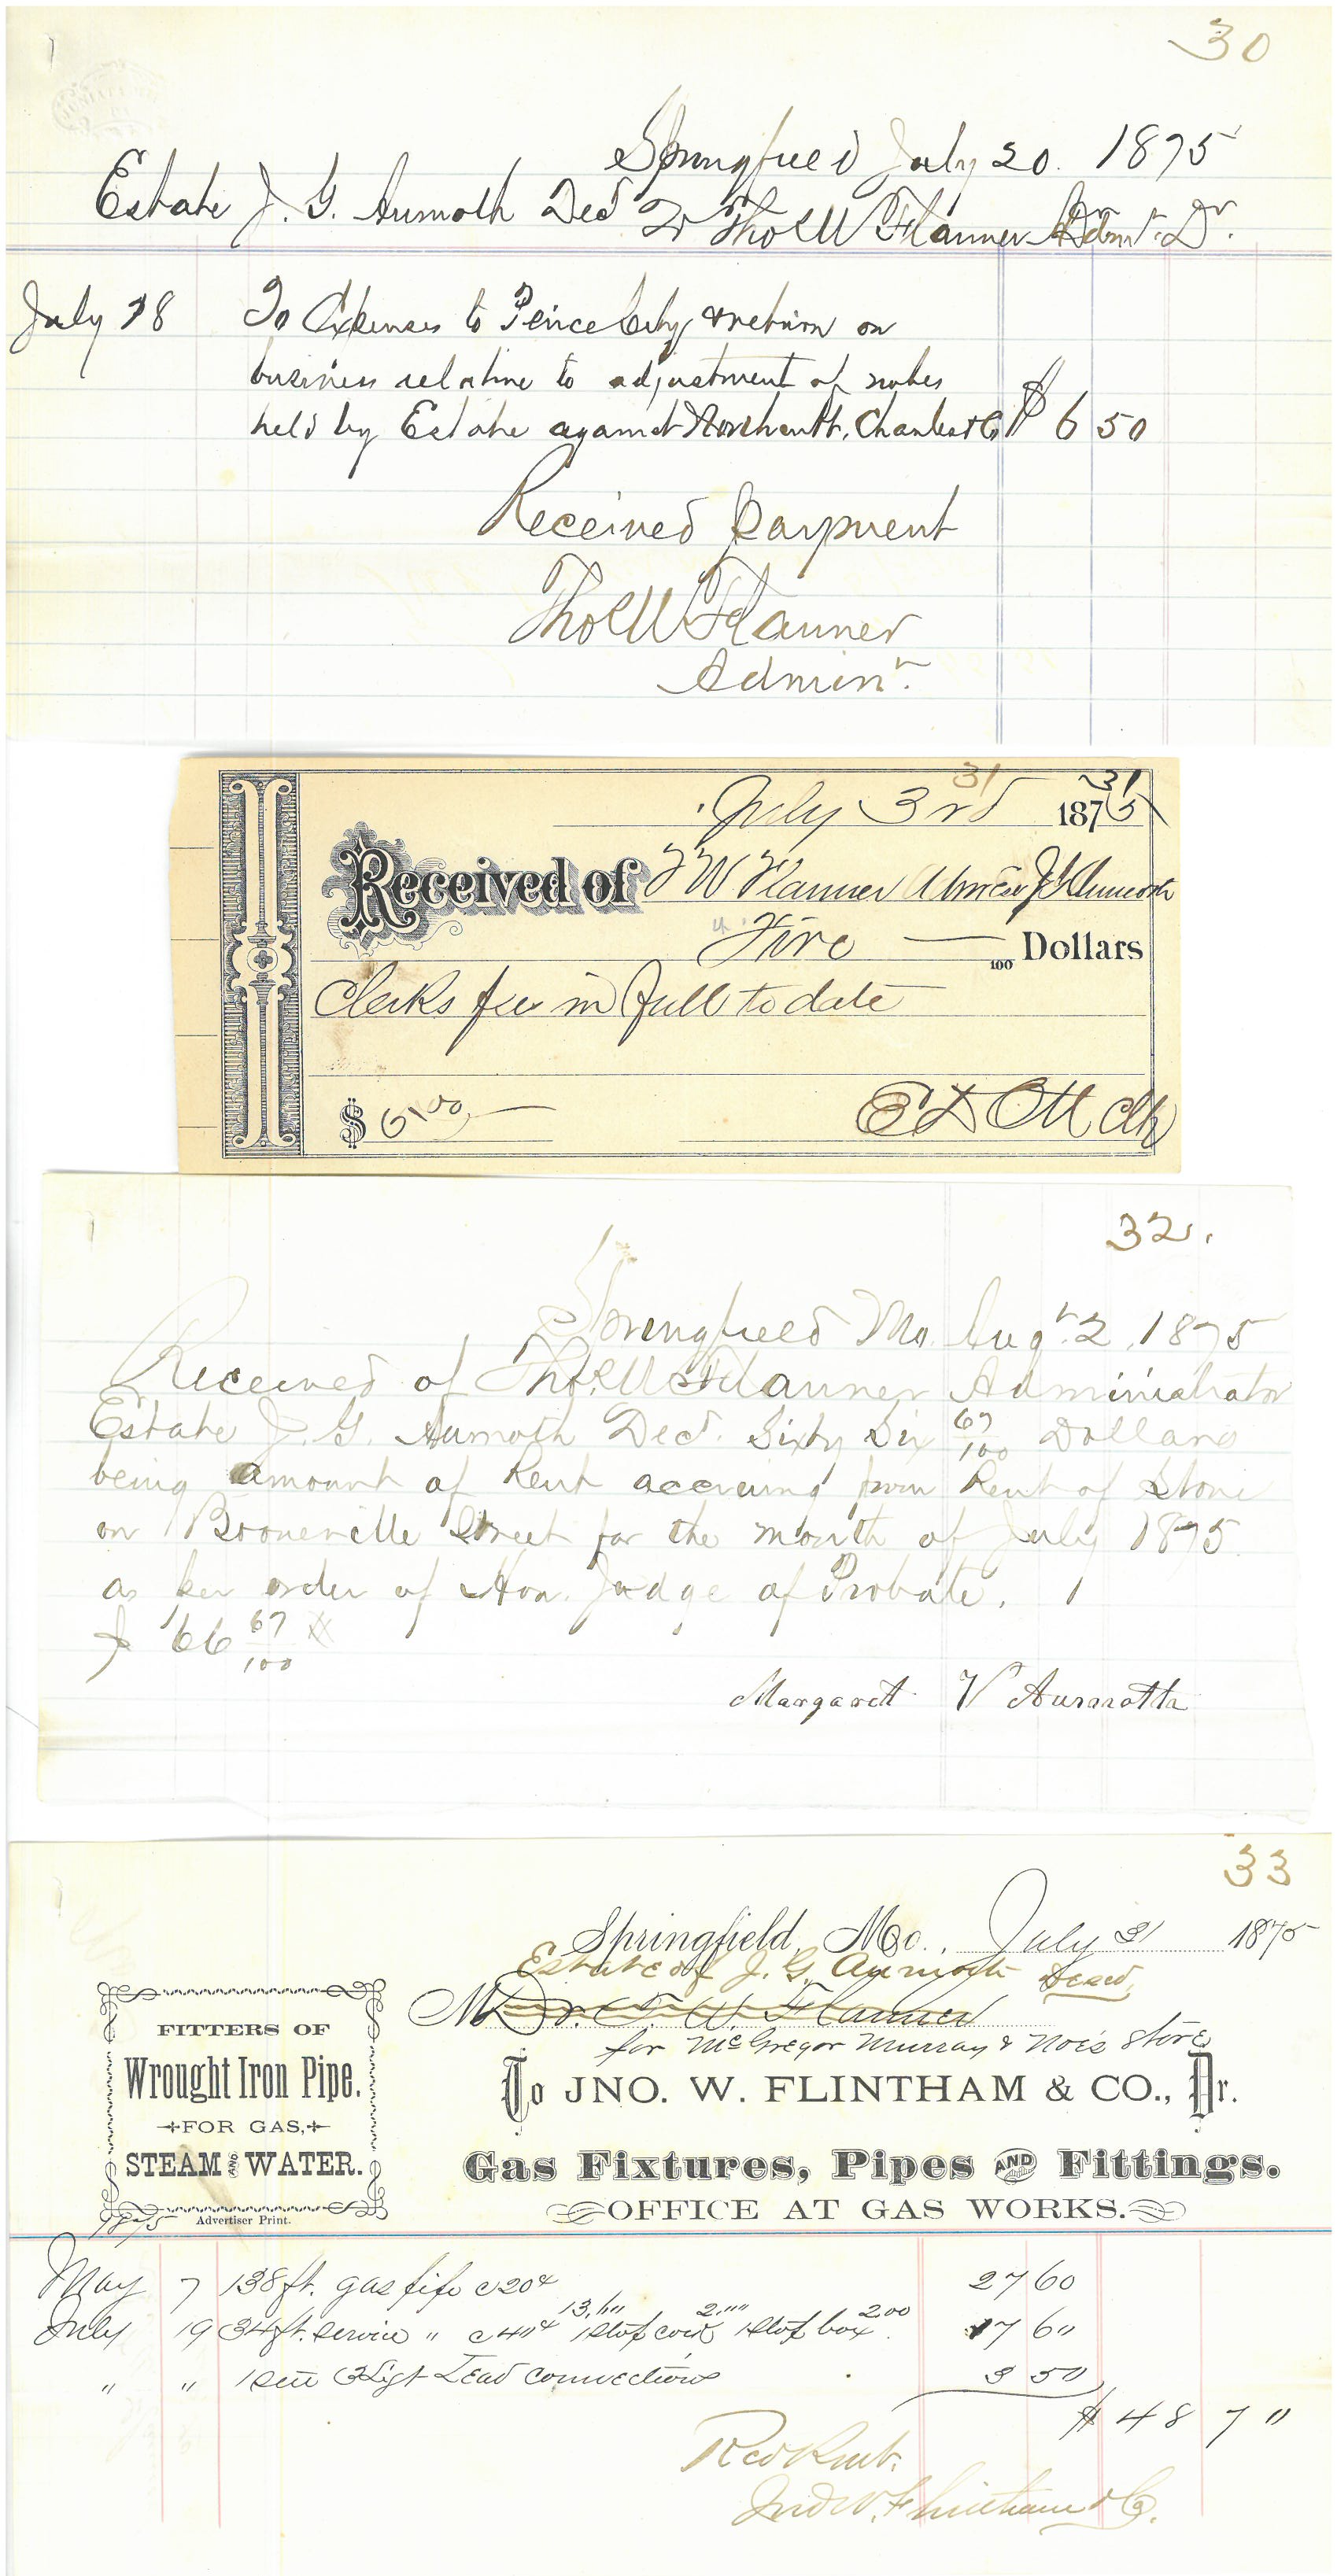 30
Springfield July 20. 1875
Estate J. G. Aumoth Decd To Thos W Flanner Admr. Dr.
July 18 To Expenses to Peirce City & return on
business relative to adjustment of notes
held by Estate against Charles & Co $ 6 50
Received payment
Thos W Flanner
Adminr.
31 31
July 3rd 1875
Received of T W Flanner J G Aumoth
Five — 100 Dollars
Clerks fee in full to date
$ 5.00
E D Ott Clk
32.
Springfield Mo. Augt. 2, 1875
Received of Thos. W Flanner Administrator
Estate J. G. Aumoth Decd. Sixty Six 67/100 Dollars
being amount of Rent accruing from Rent of Store
on Booneville Street for the month of July 1875
as per order of Hon. Judge of Probate.
$ 66 67/100
Margarett V Aurmotth
33
Springfield, Mo., July 31 1875
Estate of J. G. Aumoth Decsd,
M r. T. W. Flanner
for McGregor Murray & Noe's Store
To JNO. W. FLINTHAM & CO., Dr.
FITTERS OF
Wrought Iron Pipe.
FOR GAS,
STEAM AND WATER.
Advertiser Print.
Gas Fixtures, Pipes AND Fittings.
OFFICE AT GAS WORKS.
1875
May 7 138 ft. gas pipe c 20c 27 60
13.60 2.00 2.00
July 19 34 ft. service " c 40c 1 Stop cock 1 Stop box 17 60
" " 1 Set 3 Ligt Lead connections 3 50
$ 48 70
Recd Pmt.
Jno W. Flintham & Co.